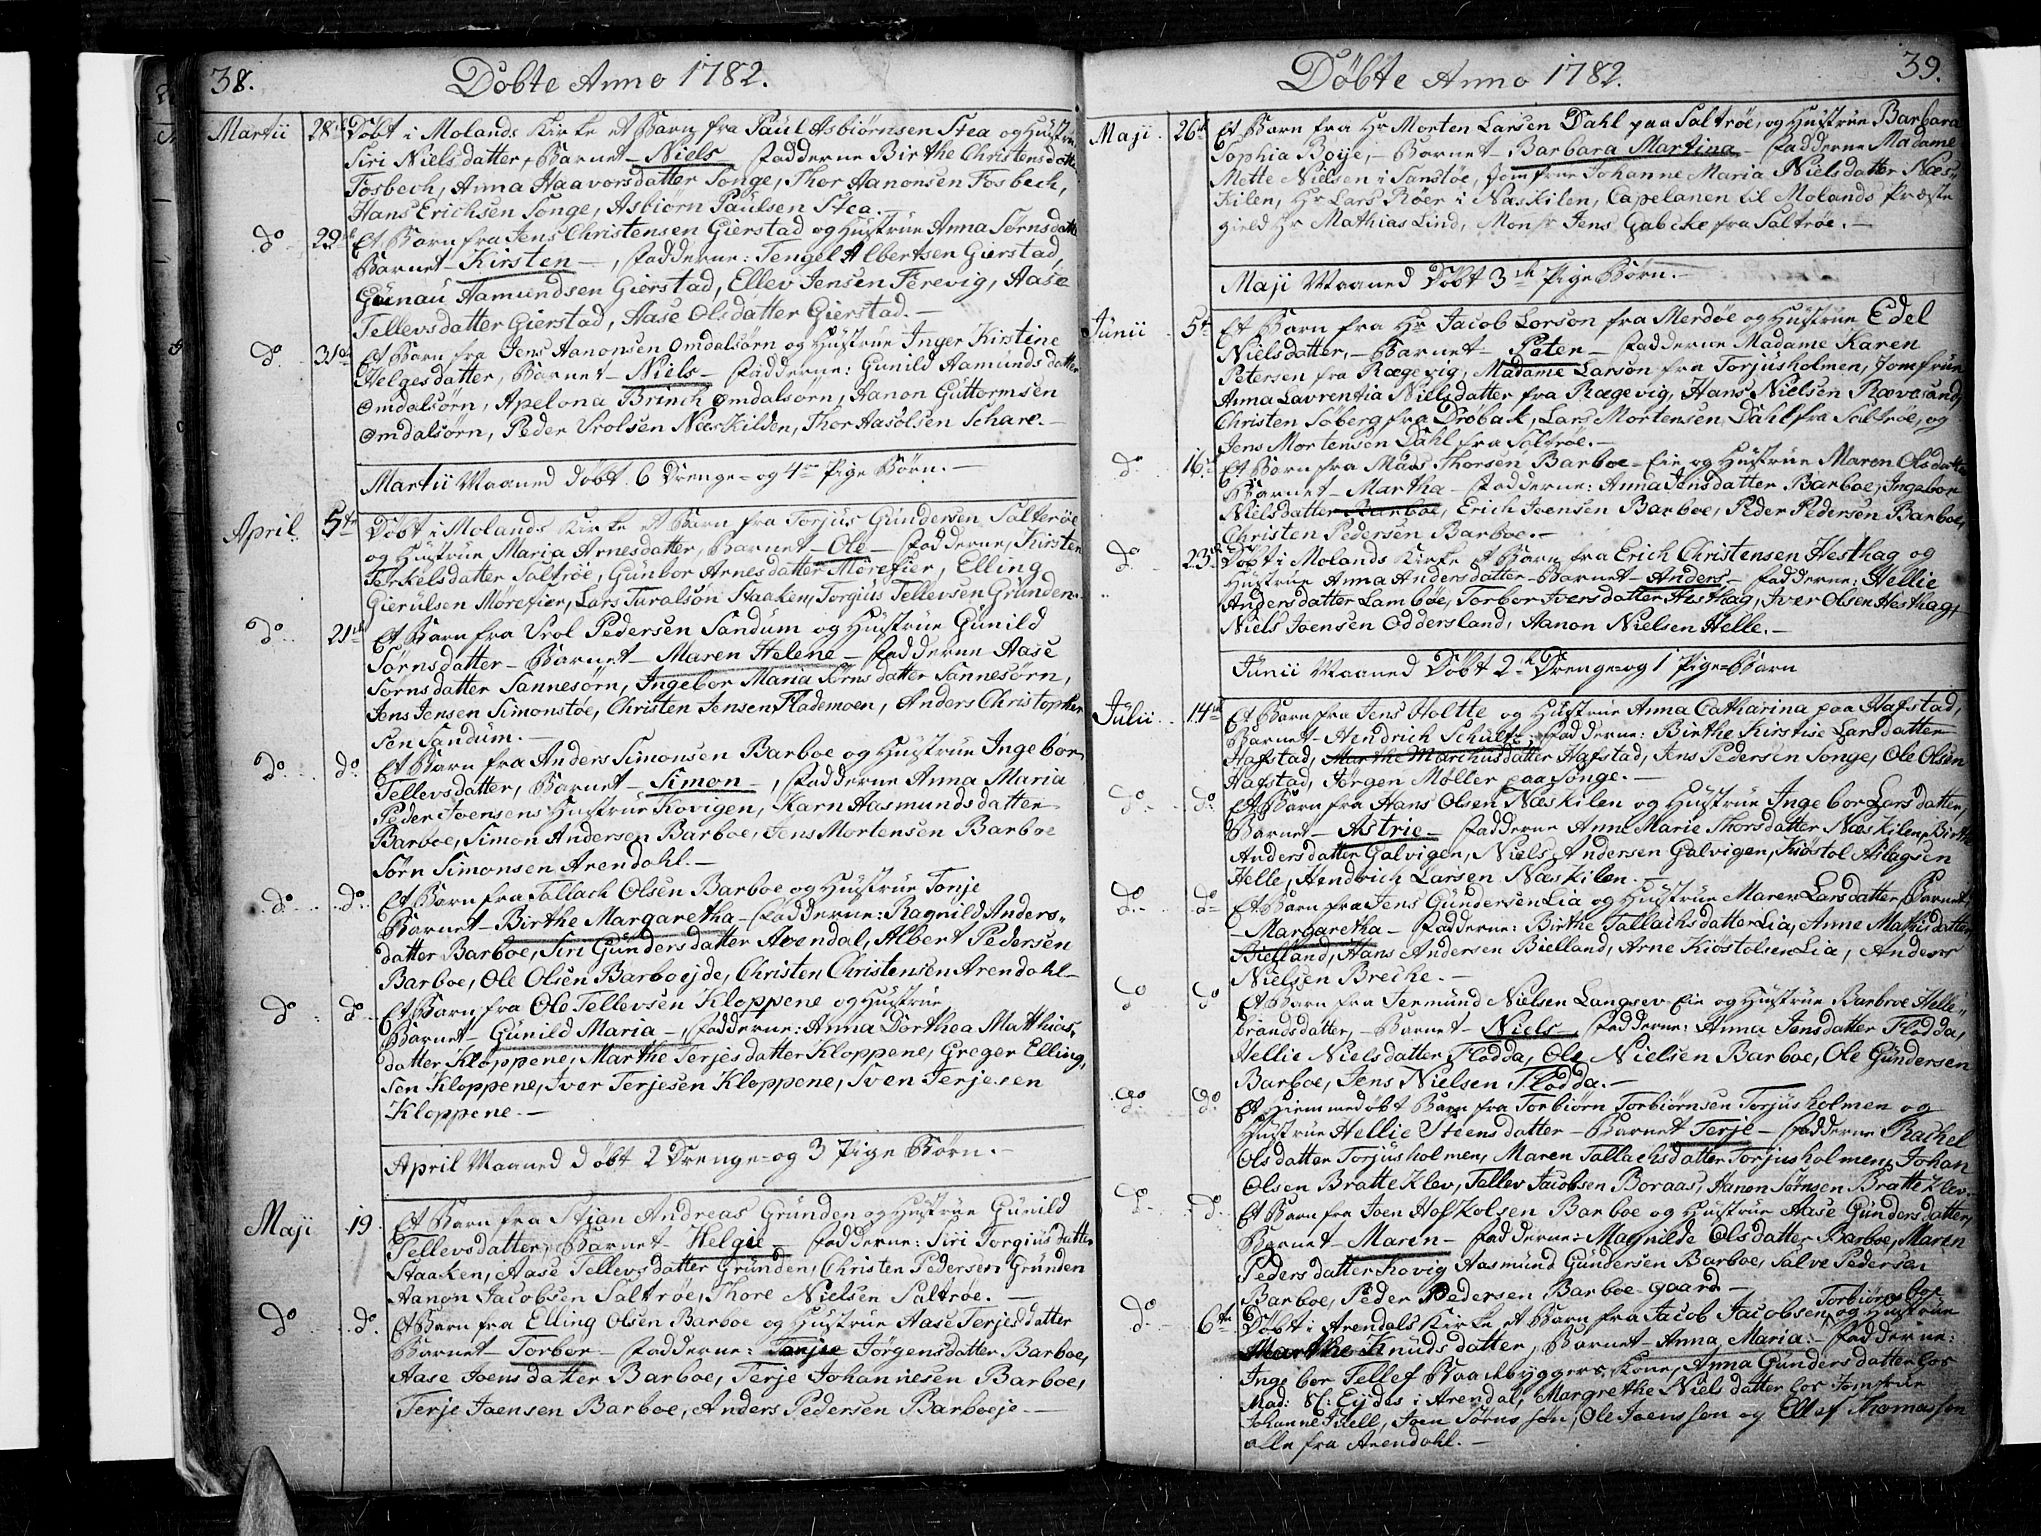 38.
Döbte Anno 1782.
Martii 28de Döbt i Molands Kirke et Barn fra Paul Asbiörnsen Stea og Hustrue
Siri Nielsdatter, Barnet - Niels - Fadderne Birthe Christensdatter
Fosbech, Anna Haavorsdatter Songe, Thor Aanonsen Fosbech,
Hans Erichsen Songe, Asbiörn Paulsen Stea. -
do 29de Et Barn fra Jens Christensen Gierstad og Hustrue Anna Sörnsdatter
Barnet - Kirsten -, Fadderne: Tengel Albertsen Gierstad,
Gunau Aamundsen Gierstad, Ellev Jensen Ferevig, Aase
Tellevsdatter Gierstad, Aase Olsdatter Gierstad. -
do 31de Et Barn fra Jens Aanonsen Omdalsörn og Hustrue Inger Kirstine
Helgesdatter, Barnet - Niels - Fadderne: Gunild Aamundsdatter
Omdalsörn, Apelona Brinch Omdalsörn, Aanon Guttormsen
Omdalsörn, Peder Vrolsen Næskilden, Thor Aasölsen Schare. -
Martii Maaned Döbt 6 Drenge- og 4re Pige Börn. -
April 5te Döbt i Molands Kirke et Barn fra Torjus Gundersen Salteröe
og Hustrue Maria Arnesdatter, Barnet - Ole - Fadderne, Kirsten
Terkelsdatter Saltröe, Gunbor Arnesdatter Mörefier, Elling
Gierulsen Mörefier, Lars Turalsön Staaken, Torgius Tellevsen Grunden.
do 21de Et Barn fra Vrol Pedersen Sandum og Hustrue Gunild
Sörnsdatter - Barnet - Maren Helene - Fadderne Aase
Sörnsdatter Sannesörn, Ingebor Maria Sörnsdatter Sannesörn,
Jens Jensen Simonstöe, Christen Jensen Flademoen, Anders Christopher
sen Sandum. -
do do Et Barn fra Anders Simonsen Barboe og Hustrue Ingebor
Tellevsdatter, Barnet - Simon -, Fadderne Anna Maria
Peder Joensens Hustrue Kovigen, Karn Aasmundsdatter
Barboe, Simon Andersen Barboe, Jens Mortensen Barboe
Sörn Simonsen Arendahl. -
do do Et Barn fra Tallach Olsen Barboe og Hustrue Tonje
Barnet - Birthe Margaretha - Fadderne: Ragnild Anders-
datter Barboe, Siri Gundersdatter Avendal, Albert Pedersen
Barboe, Ole Olsen Barboejde, Christen Christensen Arendahl -
do do Et Barn fra Ole Tellevsen Kloppene og Hustrue
Barnet - Gunild Maria -, Fadderne: Anna Dorthea Matthias,
datter Kloppene, Marthe Terjesdatter Kloppene, Greger Elling,
sen Kloppene, Iver Terjesen Kloppene, Sven Terjesen
Kloppene. -
April Maaned Döbt 2 Drenge- og 3 Pige Börn. -
Maji 19 Et Barn fra Stian Andreas Grunden og Hustrue Gunild
Tellevsdatter, Barnet Helgie - Fadderne: Siri Torgiusdatter
Staaken, Aase Tellevsdatter Grunden, Christen Pedersen Grunden
Aanon Jacobsen Saltröe, Thore Nielsen Saltröe. -
do do Et Barn fra Elling Olsen Barboe og Hustrue Aase Terjesdatter
Barnet - Torbor - Fadderne: Tonjie Jörgensdatter Barboe,
Aase Joensdatter Barboe, Terje Johannesen Barboe,
Terje Joensen Barboe, Anders Pedersen Barboeje -
39.
Döbte Anno 1782.
Maji 26de Et Barn fra Hr Morten Larsen Dahl paa Saltröe, og Hustrue Barbara
Sophia Boije, - Barnet - Barbara Martina - Fadderne Madame
Mette Nielsen i Sanstöe, Jomfrue Johanne Maria Nielsdatter Næs-
kilen, Hr Lars Röer i Næskilen, Capelanen til Molands Præste
gield Hr Mathias Lind, Monsr Jens Gabcke fra Saltröe. -
Maji Maaned Döbt 3de Pige Börn. -
Junii 5te Et Barn fra Hr Jacob Lorson fra Merdöe og Hustrue Edel
Nielsdatter, - Barnet - Pater - Fadderne Madame Karen
Petersen fra Rægevig, Madame Larson fra Torjusholmen, Jomfrue
Anna Lavrentia Nielsdatter fra Rægevig, Hans Nielsen Rævesand,
Christen Söberg fra Dröbak, Lars Mortensen Dahl fra Saltröe, og
Jens Mortensen Dahl fra Saltröe. -
do 16de Et Barn fra Maas Thorsen Barboe-Eie og Hustrue Maren Olsdatter
Barnet - Martha - Fadderne: Anna Jensdatter Barboe, Ingebor
Nielsdatter Barboe, Erich Joensen Barboe, Peder Pedersen Barboe,
Christen Pedersen Barboe. -
do 23de Döbt i Molands Kirke et Barn fra Erich Christensen Hesthag og
Hustrue Anna Andersdatter - Barnet - Anders - Fadderne: Hellie
Andersdatter Lamböe, Torbor Iversdatter Hesthag, Iver Olsen Hesthag,
Niels Joensen Oddersland, Aanon Nielsen Helle. -
Junii Maaned Döbt 2de Drenge- og 1 Pige-Barn
Julii 14de Et Barn fra Jens Holtte og Hustrue Anna Catharina paa Hafstad,
Barnet - Hendrich Schult - Fadderne: Birthe Kirstise Larsdatter
Hafstad, Marthe Marchusdatter Hafstad, Jens Pedersen Songe, Ole Olsen
Hafstad, Jörgen Möller paa Songe. -
do do Et Barn fra Hans Olsen Næskilen og Hustrue Ingebor Larsdatter,
Barnet - Astrie - Fadderne Anne Marie Thorsdatter Næskilen, Birthe
Andersdatter Galvigen, Niels Andersen Galvigen, Kiöstol Aslagsen
Helle, Hendrich Larsen Næskilen. -
do do Et Barn fra Jens Gundersen Lia og Hustrue Maren Larsdatter Barnet
- Margaretha - Fadderne: Birthe Tallachsdatter Lia, Anne Mathisdatter
Bielland, Hans Andersen Bielland, Arne Kiöstolsen Lia, Anders
Nielsen Breche. -
do do Et Barn fra Jermund Nielsen Langsev-Eie og Hustrue Barbroe Helle-
brandsdatter, - Barnet - Niels -, Fadderne: Anna Jensdatter Flödda,
Hellie Nielsdatter Flödda, Ole Nielsen Barboe, Ole Gundersen
Barboe, Jens Nielsen Flödda. -
do do Et Hiemmedöbt Barn fra Torbiörn Torbiörnsen Torjusholmen og
Hustrue Hellie Steensdatter - Barnet Terje - Fadderne Rachel
Olsdatter Torjusholmen, Maren Tallachsdatter Torjusholmen, Johan
Olsen Bratteklev, Tellev Jacobsen Boraas, Hanon Sörnsen Bratteklev
do do Et Barn fra Joen Hofkolsen Barboe og Hustrue Aase Gundersdatter,
Barnet - Maren - Fadderne: Magnilde Olsdatter Barboe, Maren
Pedersdatter Kovig, Aasmund Gundersen Barboe, Salve Pedersen
Barboe, Peder Pedersen Barboe-gaard -
Torbiörnsboe
do 6te Döbt i Arendals Kirke et Barn fra Jacob Jacobsen, og Hustrue
Marthe Knudsdatter, Barnet Anna Maria: - Fadderne:
Ingebor Tellef Baadbyggers Kone, Anna Gundersdatter hos
Mad: Eydes i Arendal, Margrethe Nielsdatter hos Jomfrue
Johanne Juell, Joen Sörnssön, Ole Joenssen og Ellef Thomassen
alle fra Arendahl. -